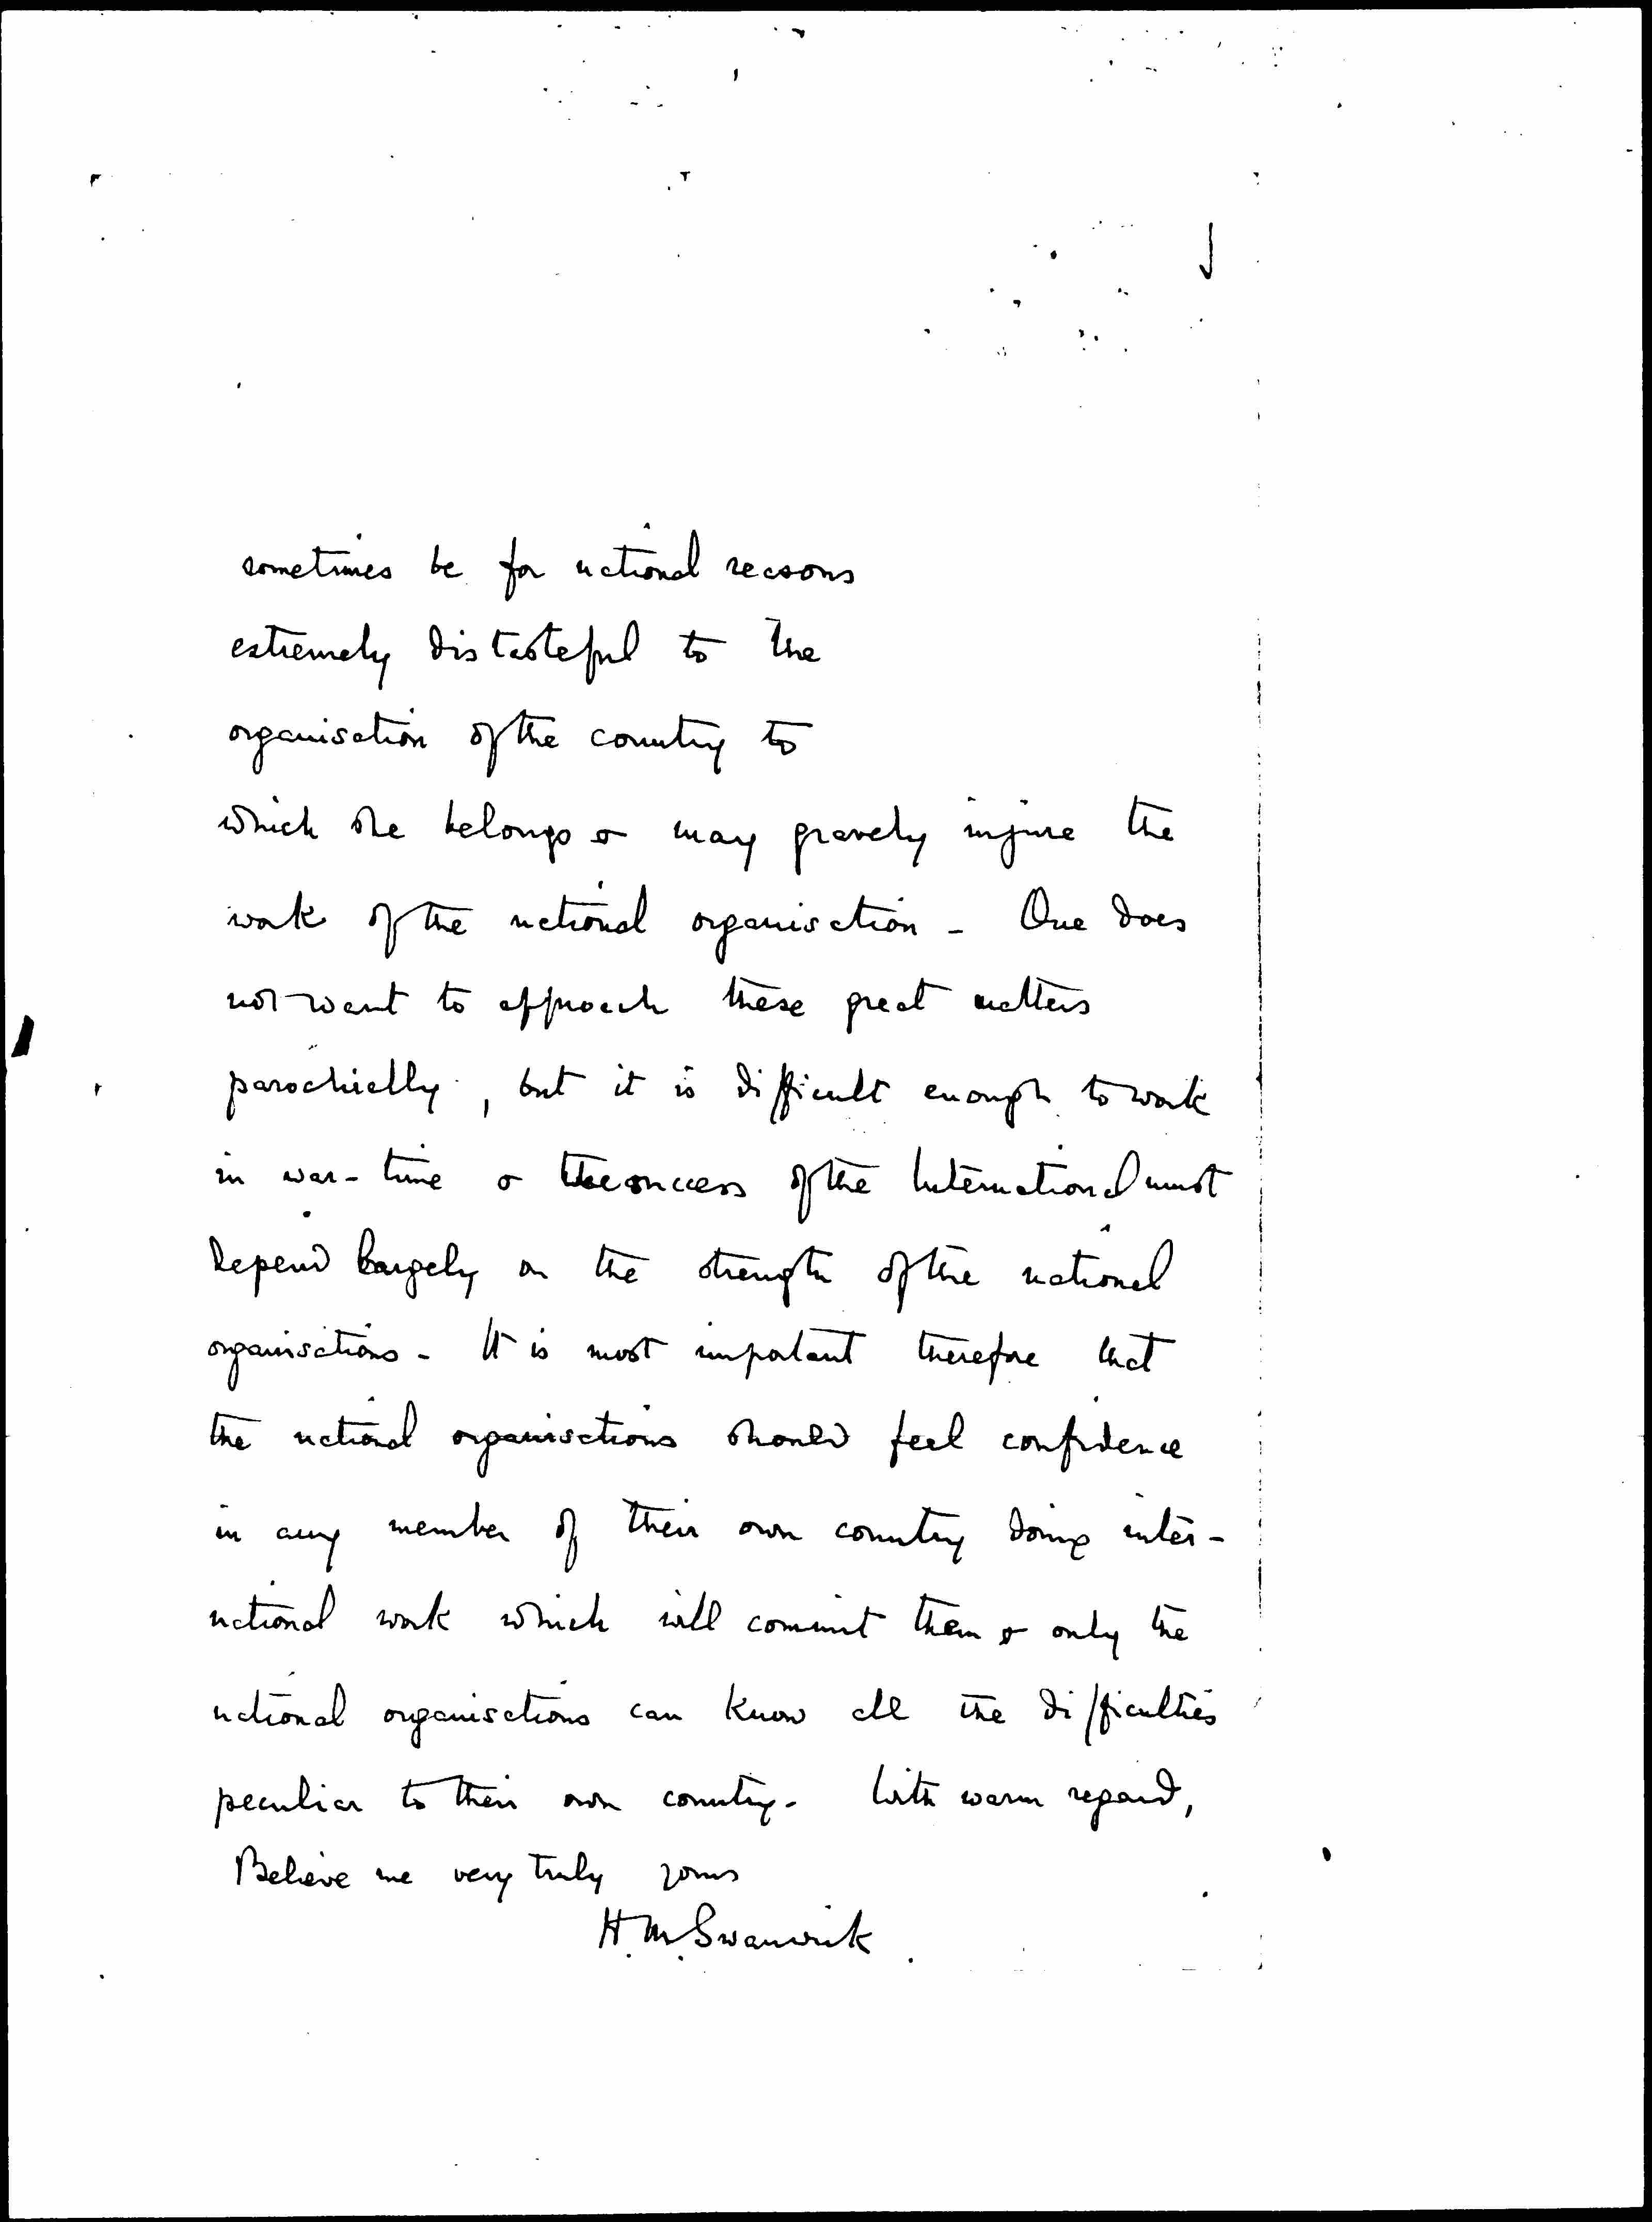 sometimes be for national reasons
extremely distasteful to the
organisation of the country to
which she belongs & may gravely injure the
work of the national organisation - One does
not want to approach these great matters
parochially, but it is difficult enough to work
in war-time & the success of the International must
depend largely on the strength of the national
organisations - It is most important therefore that
the national organisations should feel confidence
in any member of their own country doing inter-
national work which will commit them & only the
national organisations can know all the difficulties
peculiar to their own country. With warm regard,
Believe me very truly yours
H. M. Swanwick